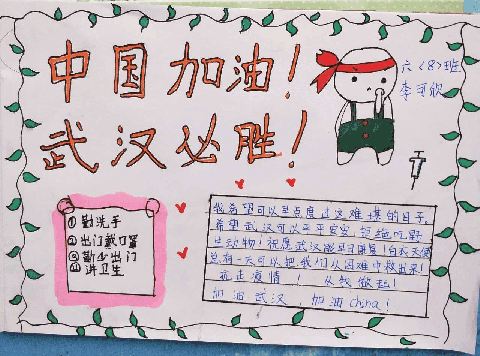 中国加油！
武汉必胜！
六（8）班
李 欣
①勤洗手
②出门戴口罩
③勤少出门
④讲卫生
我希望可以早点度过这难堪的日子。
希望武汉可以平平安安，拒绝吃野
生动物！祝愿武汉能早日康复！白衣天使
总有一天可以把我们从困难中救出来！
抗击疫情！从我做起！
加油武汉，加油China！